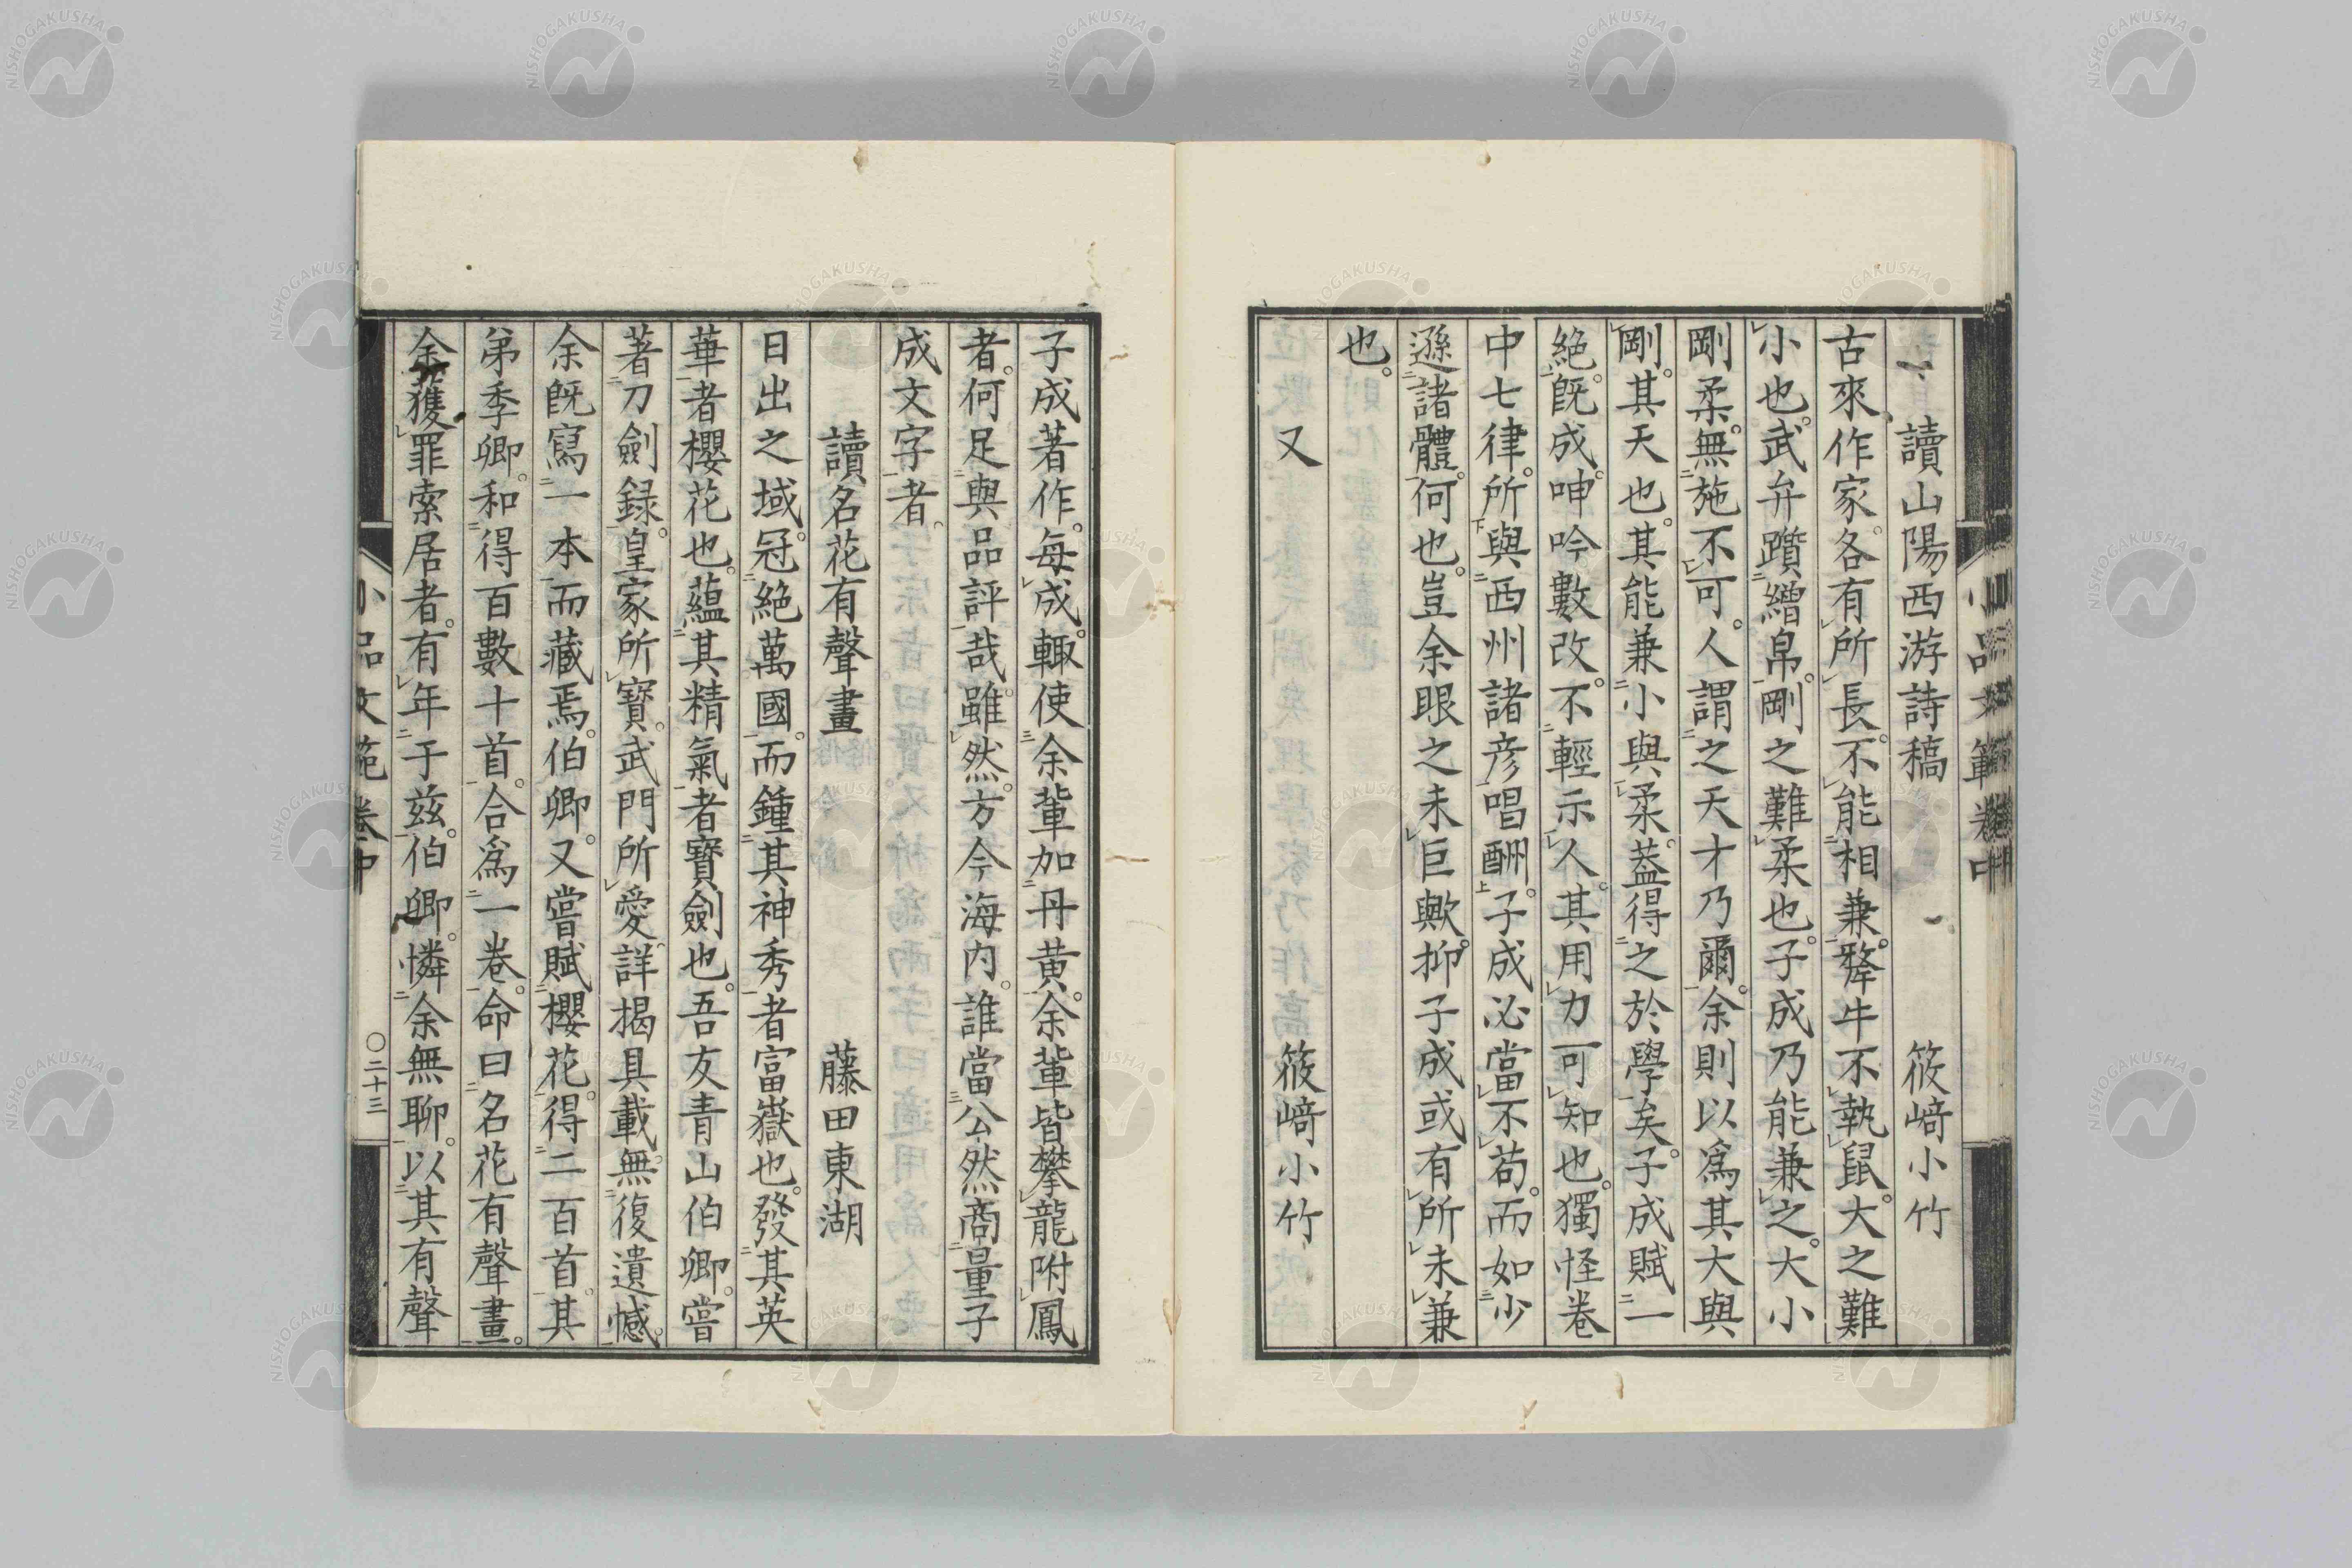 讀山陽西游詩稿　筱﨑小竹
古來作家。各有所長。不能相兼。犛牛不執鼠。大之難
小也。武弁躓繒帛。剛之難柔也。子成乃能兼之。大小
剛柔。無施不可。人謂之天才乃爾。余則以爲其大與
剛。其天也。其能兼小與柔。蓋得之於學矣。子成賦一
絕。既成。呻吟數改。不輕示人。其用力可知也。獨怪卷
中七律。所與西州諸彦唱酬。子成必當不苟。而如少
遜諸體。何也。豈余眼之未巨歟。抑子成或有所未兼
也。
又　筱﨑小竹
子成著作。每成。輒使余輩加丹黃。余輩皆攀龍附鳳
者。何足與品評哉。雖然。方今海內。誰當公然商量子
成文字者。
讀名花有聲畫　藤田東湖
日出之域。冠絕萬國。而鍾其神秀者富嶽也。發其英
華者櫻花也。蘊其精氣者寶劍也。吾友青山伯卿。嘗
著刀劍録。皇家所寶。武門所愛。詳揭具載。無復遺憾。
余既寫一本而藏焉。伯卿。又嘗賦櫻花。得二百首。其
弟季卿。和得百數十首。合爲一卷。命曰名花有聲畫。
余獲罪索居者。有年于茲。伯卿。憐余無聊。以其有聲
小品文範卷中　〇二十三